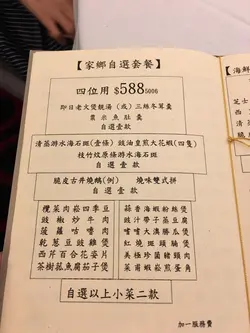 【家鄉自選套餐】
四位用 $588 5000
即日老火煲靚湯（或）三絲冬茸羹
粟米魚肚羹
自選壹款
清蒸游水海石斑（壹條）豉油皇煎大花蝦（四隻）
枝竹炆原條游水海石斑
自選壹款
脆皮古井燒鵝（例） 燒味雙式拼
自選壹款
欖菜肉崧四季豆
豉椒炒牛肉
菠蘿咕嚕肉
乾蔥豆豉雞煲
西芹百合花姿片
茶樹菰魚腐茄子煲
蒜香海蝦粉絲煲
豉汁帶子蒸豆腐
嘈嘈大澳勝瓜煲
紅燒斑頭腩煲
美極珍菌豬頸肉
菜甫蝦崧煎蛋角
自選以上小菜二款
加一服務費
【海鮮
芝士